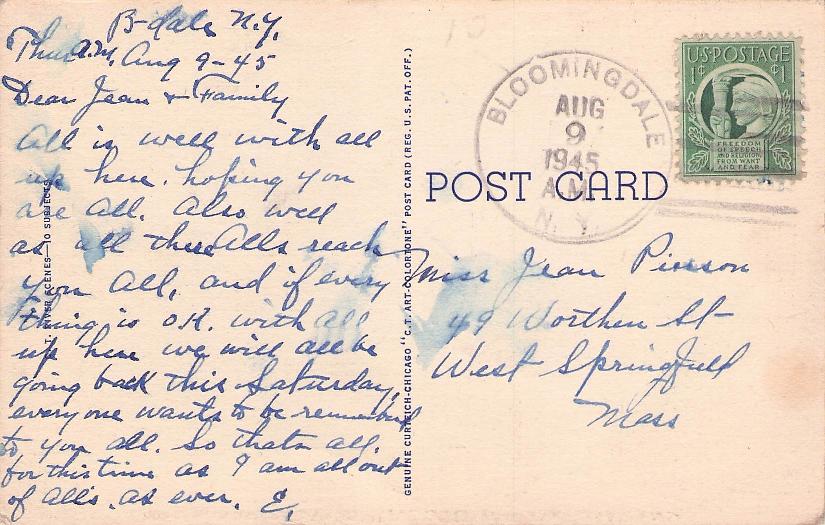 B-dale N.Y.
Thur a.m. Aug 9-45
Dear Jean & Family
All is well with all
up here. hoping you
are all. Also well
as all these Alls reach
you all, and if every
thing is O.K. with all
up here we will all be
going back this Saturday,
everyone wants to be remembered
to you all. So thats all.
for this time as I am all out
of all's. as ever. E.
SCENES—10 SUBJECTS
GENUINE CURTEICH-CHICAGO "C.T. ART-COLORTONE" POST CARD (REG. U.S. PAT. OFF.)
BLOOMINGDALE
AUG
9
1945
A.M.
N.Y.
U.S. POSTAGE
1¢ ¢1
FREEDOM
OF SPEECH
AND RELIGION,
FROM WANT
AND FEAR
POST CARD
Miss Jean Pierson
49 Worthen St
West Springfield
Mass